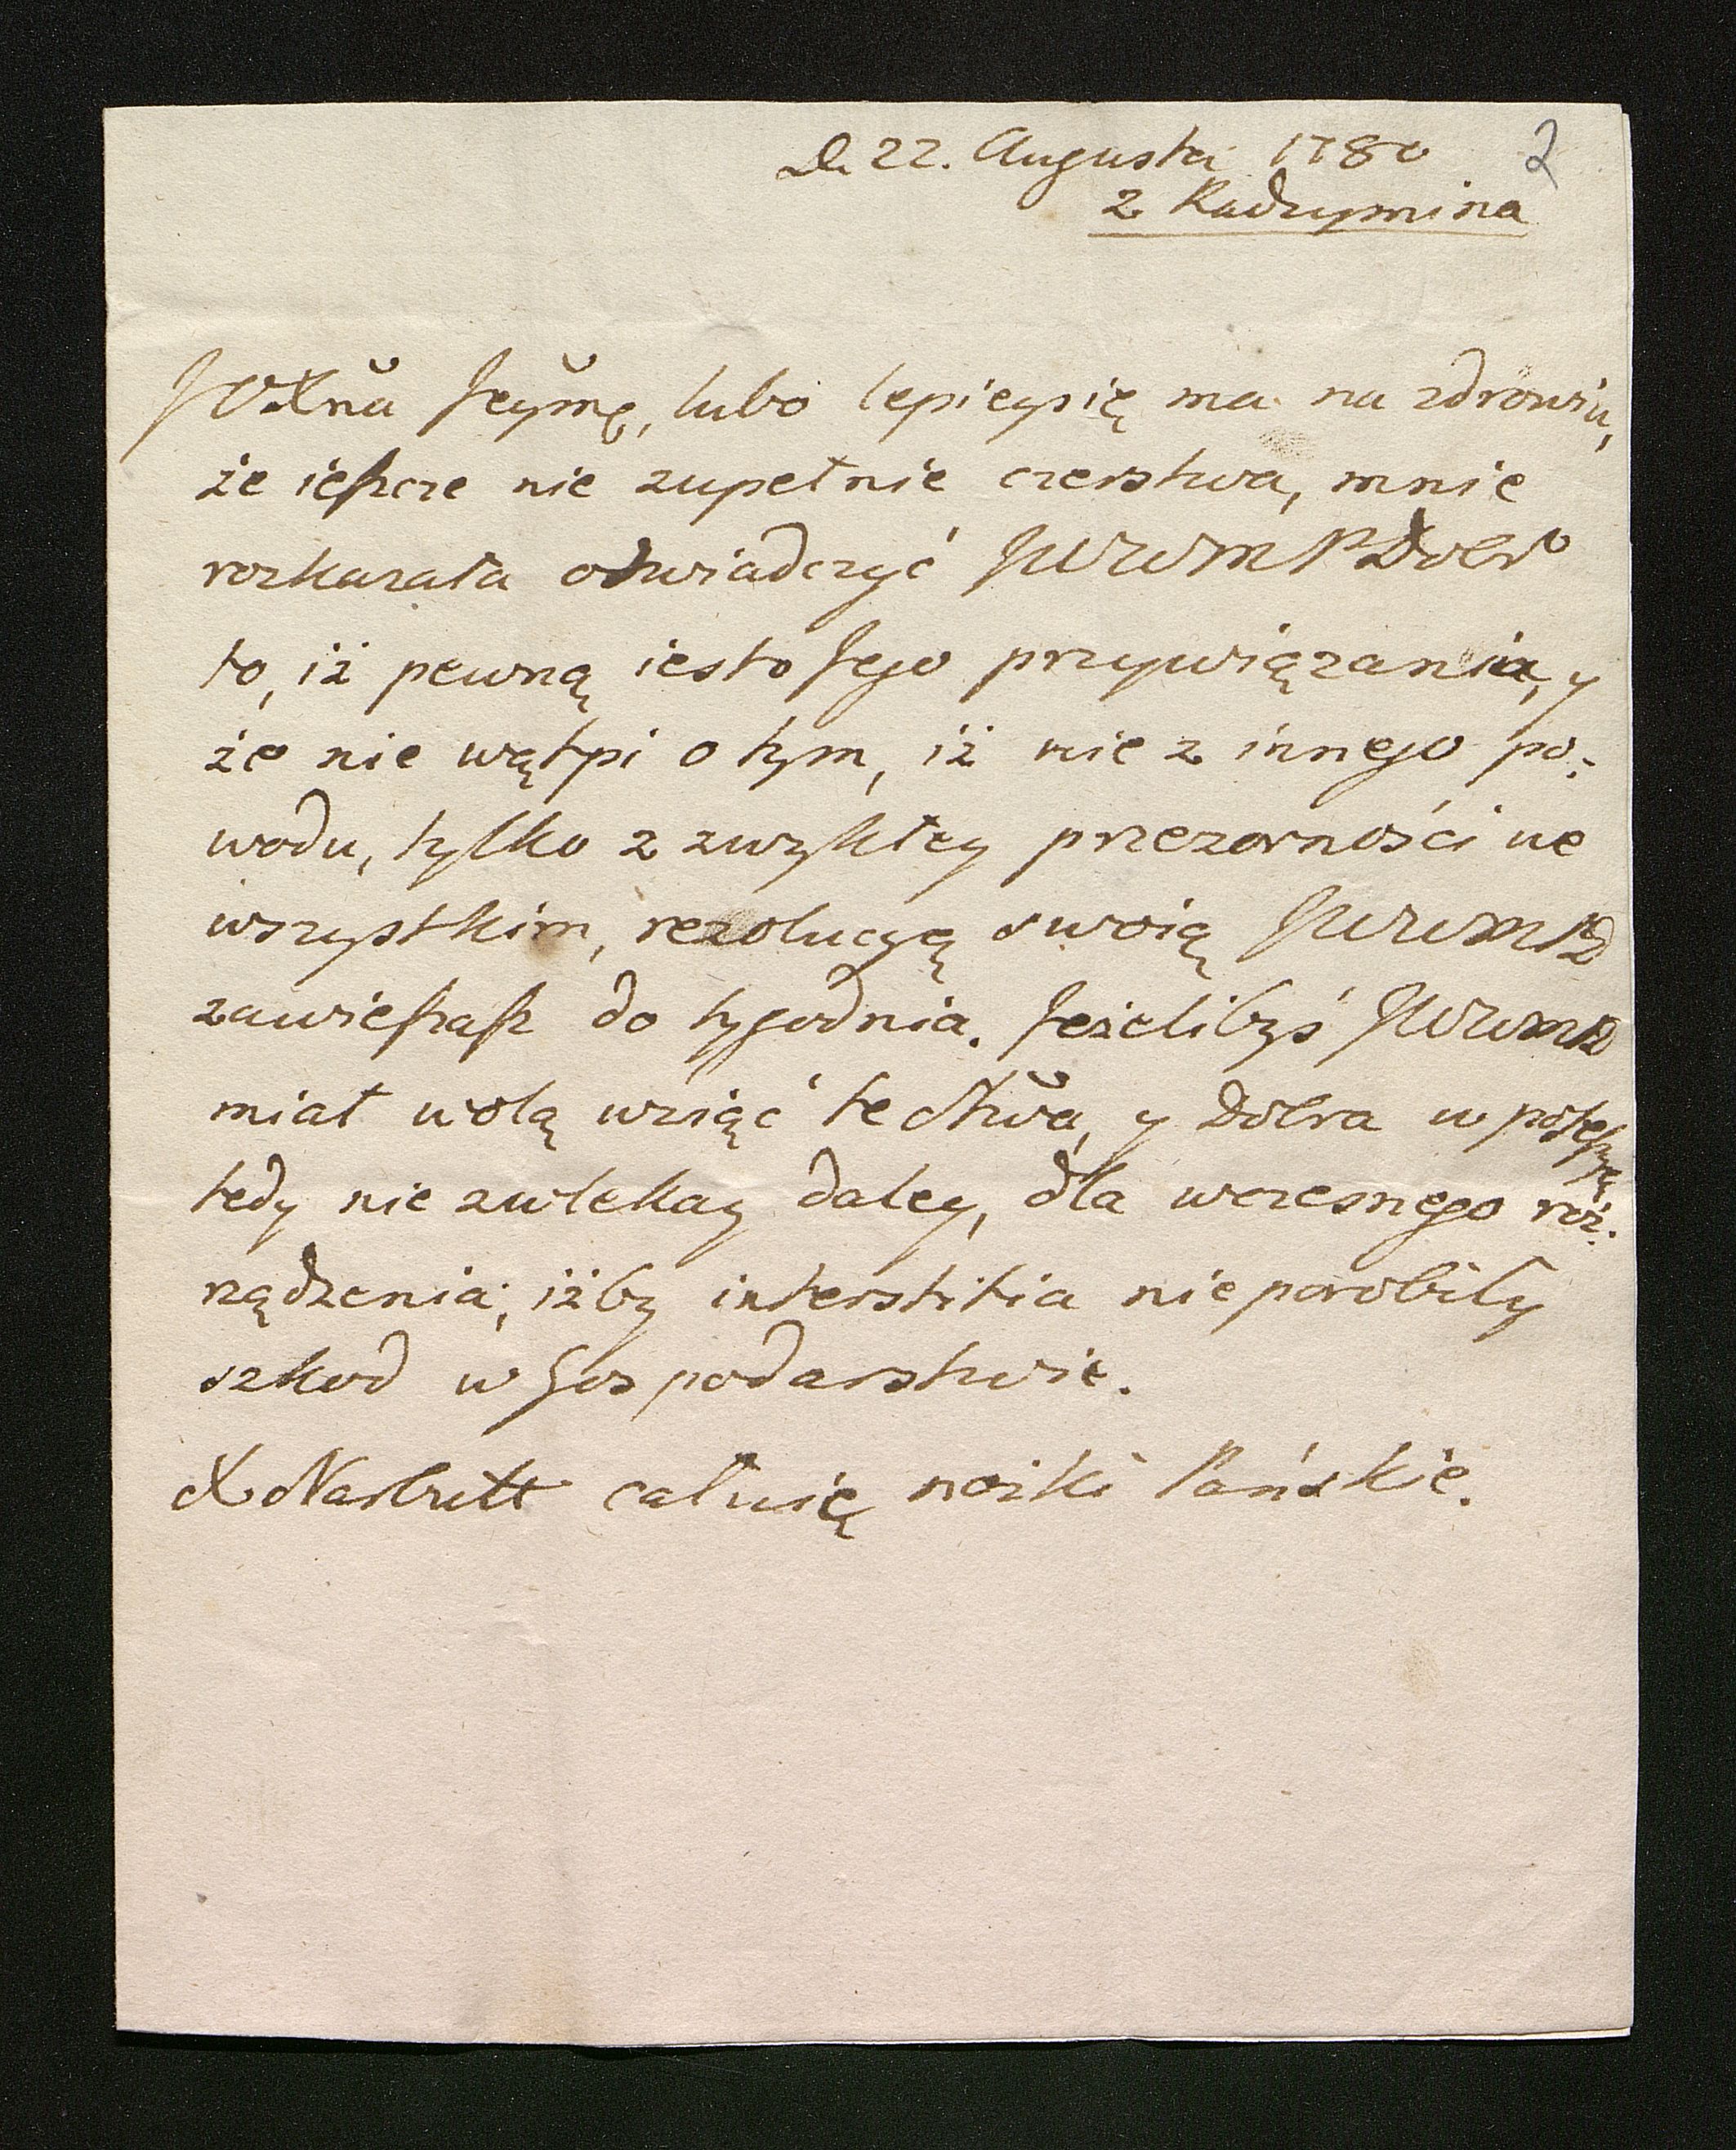 D. 22. Augusta 1780 2
z Radzymina
JOXna Jeymć, lubo lepieysię ma na zdrowiu,
że ieszcze nie zupełnie czerstwa, mnie
rozkazała oświadczyć JWWMPDobr
to, iż pewną iesto Jego przywiązania, y
że nie wątpi o tym, iż nie z innego po:
wodu, tylko z zwykłey przezorności we
wszystkim, rezolucyą swoią JWWMPD
zawieszasz do tygodnia. Jeżelibyś JWWMPD
miał wolą wziąć te Stwa, y Dobra w possessyą
tedy nie zwlekay daley, dla wczesnego roz:
rządzenia, iżby interstitia nieporobiły
szkod w Gospodarstwie.
X Nasbutt całuię nożki Pańskie.